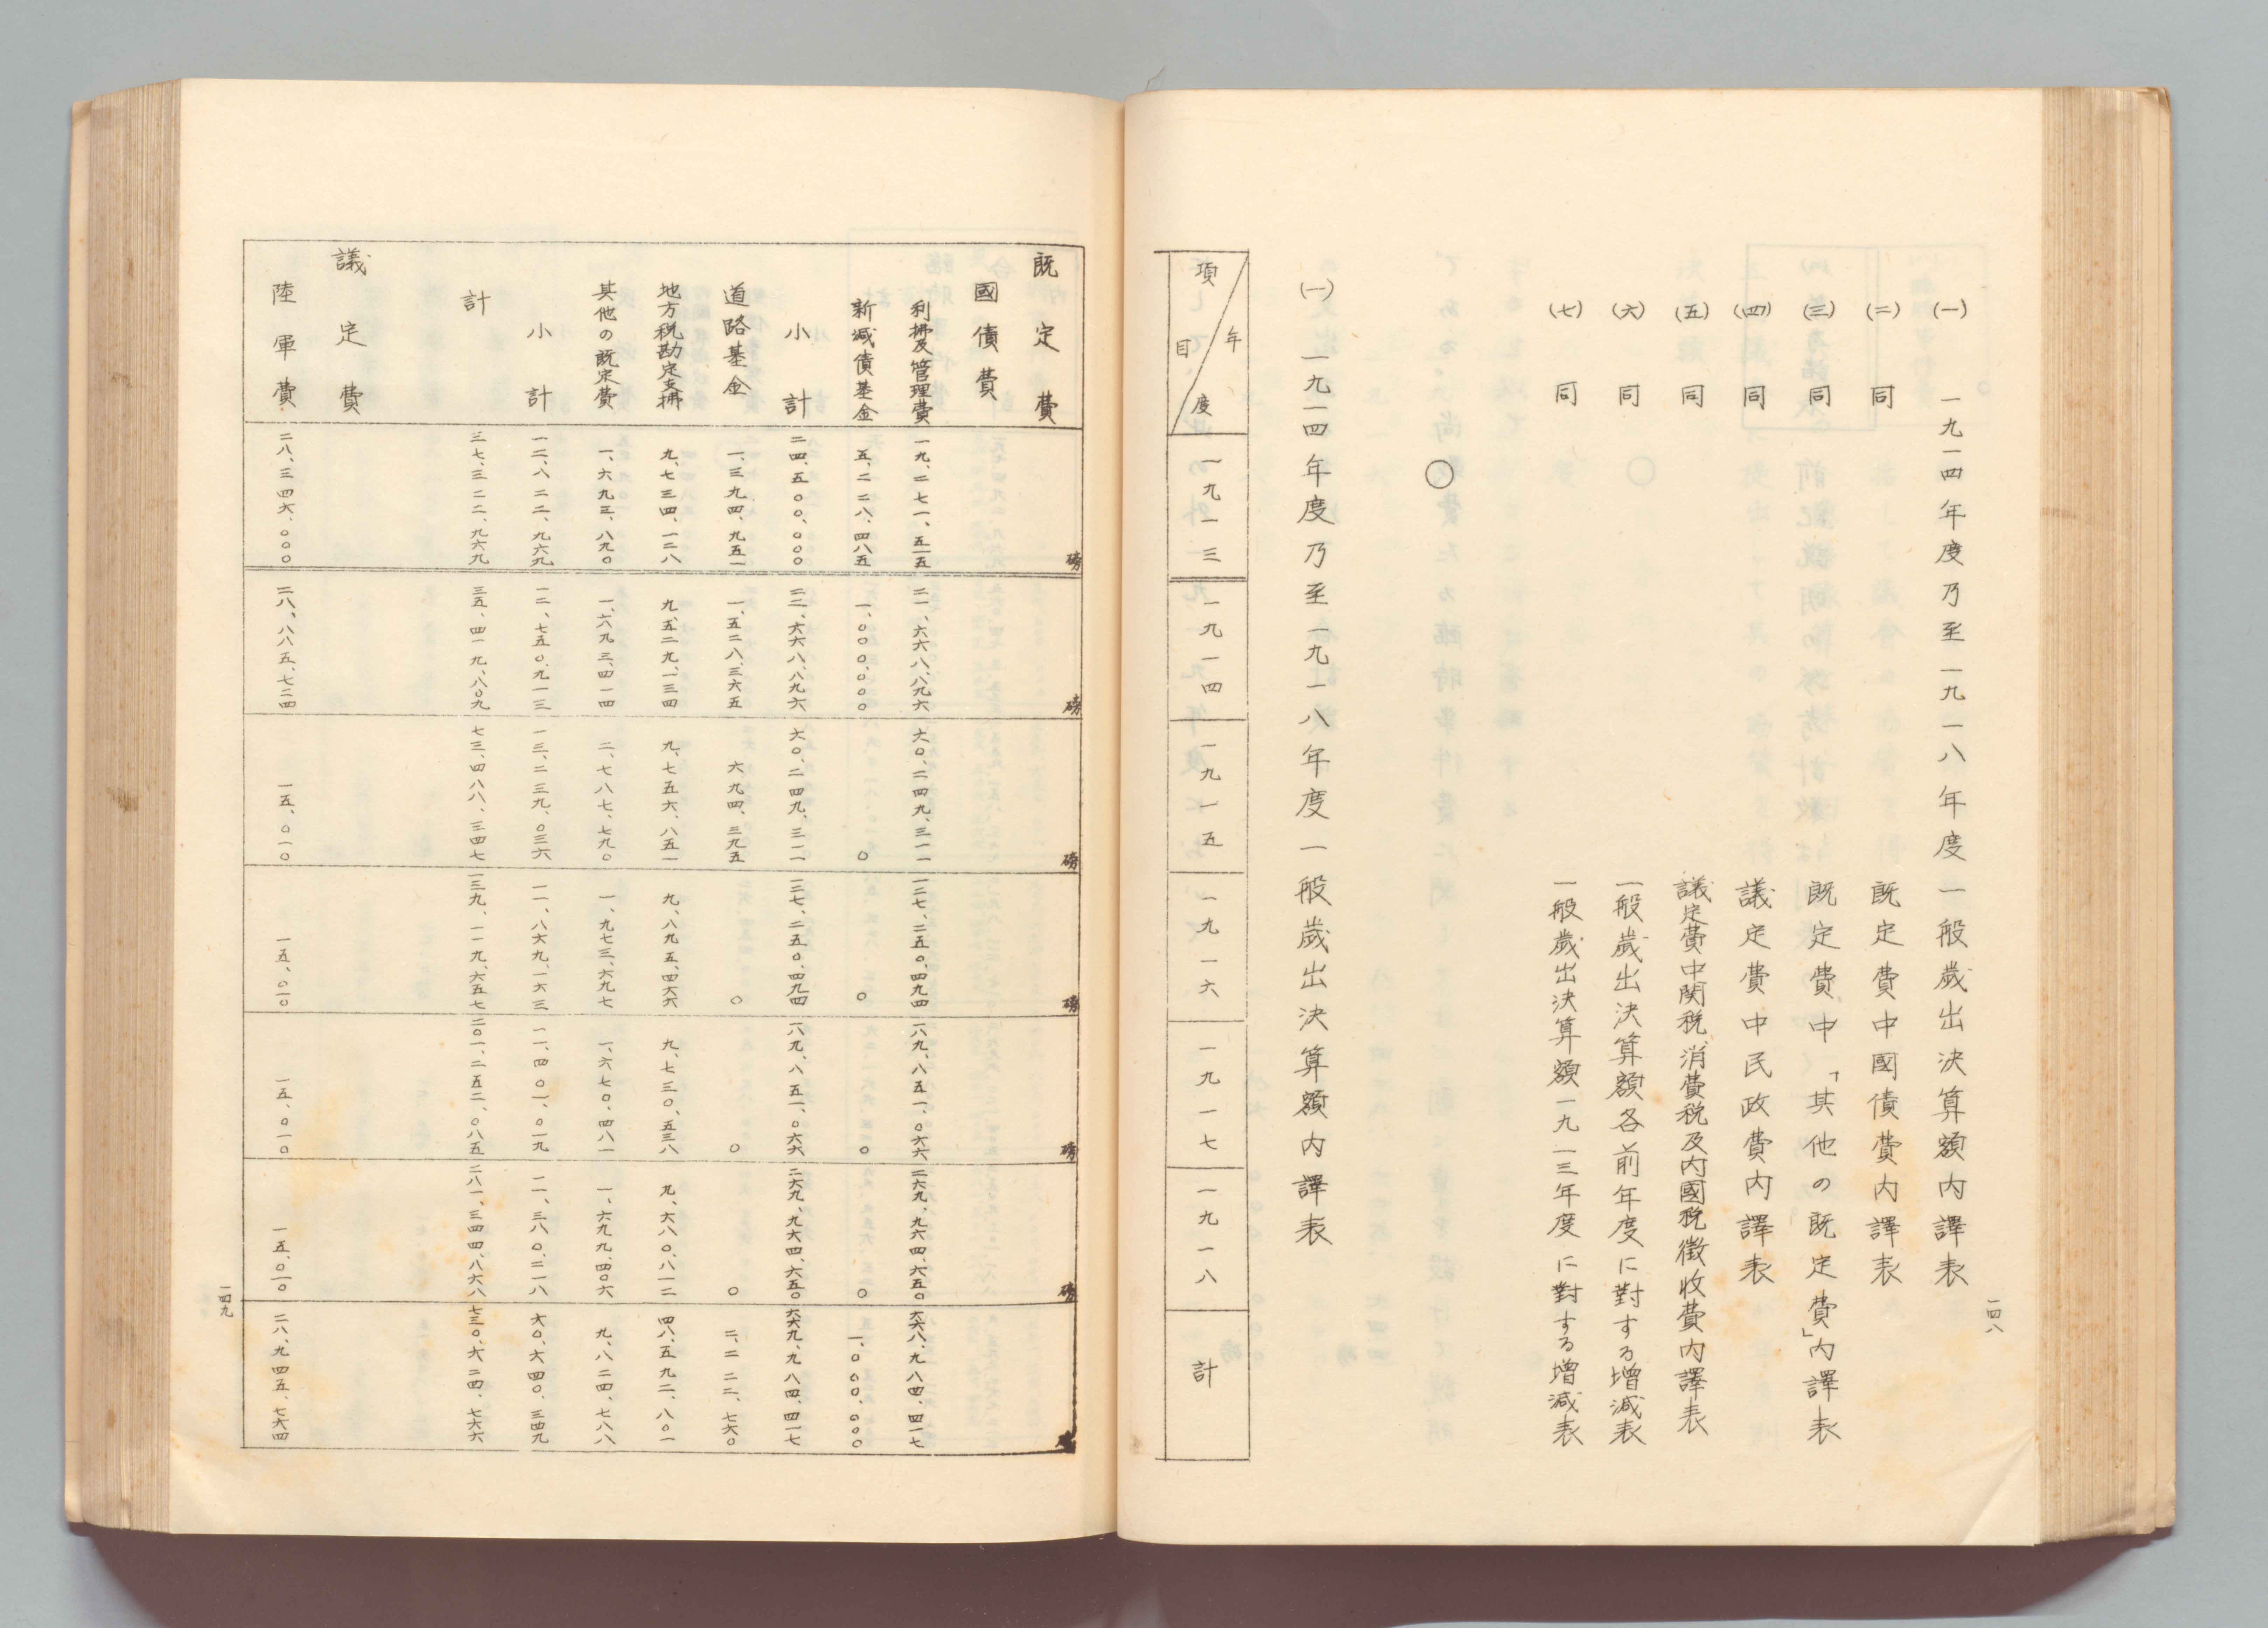 一四八
(一) 一九一四年度乃至一九一八年度一般歳出決算額内譯表
(二) 同 既定費中國債費内譯表
(三) 同 既定費中「其他の既定費」内譯表
(四) 同 議定費中民政費内譯表
(五) 同 議定費中関税、消費税及内國税徴收費内譯表
(六) 同 一般歳出決算額各前年度に對する増減表
(七) 同 一般歳出決算額一九一三年度に對する増減表
〇
(一) 一九一四年度乃至一九一八年度一般歳出決算額内譯表
項目 年度 一九一三 一九一四 一九一五 一九一六 一九一七 一九一八 計
既定費 磅 磅 磅 磅 磅 磅 磅
國債費
利拂及管理費 一九、二七一、五一五 二一、六六八、八九六 六〇、二四九、三一一 一二七、二五〇、四九四 一八九、八五一、〇六六 二六九、九六四、六五〇 六六八、九八四、四一七
新減債基金 五、二二八、四八五 一、〇〇〇、〇〇〇 〇 〇 〇 〇 一、〇〇〇、〇〇〇
小計 二四、五〇〇、〇〇〇 二二、六六八、八九六 六〇、二四九、三一一 一二七、二五〇、四九四 一八九、八五一、〇六六 二六九、九六四、六五〇 六六九、九八四、四一七
道路基金 一、三九四、九五一 一、五二八、三六五 六九四、三九五 〇 〇 〇 二、二二二、七六〇
地方税勘定支拂 九、七三四、一二八 九、五二九、一三四 九、七五六、八五一 九、八九五、四六六 九、七三〇、五三八 九、六八〇、八一二 四八、五九二、八〇一
其他の既定費 一、六九三、八九〇 一、六九三、四一四 二、七八七、七九〇 一、九七三、六九七 一、六七〇、四八一 一、六九九、四〇六 九、八二四、七八八
小計 一二、八二二、九六九 一二、七五〇、九一三 一三、二三九、〇三六 一一、八六九、一六三 一一、四〇一、〇一九 一一、三八〇、二一八 六〇、六四〇、三四九
計 三七、三二二、九六九 三五、四一九、八〇九 七三、四八八、三四七 一三九、一一九、六五七 二〇一、二五二、〇八五 二八一、三四四、八六八 七三〇、六二四、七六六
議定費
陸軍費 二八、三四六、〇〇〇 二八、八八五、七二四 一五、〇一〇 一五、〇一〇 一五、〇一〇 一五、〇一〇 二八、九四五、七六四
一四九